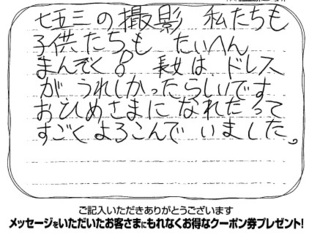 七五三の撮影 私たちも
子供たちも たいへん
まんぞく♪ 長女は、ドレス
がうれしかったらしいです
おひめさまになれたって
すごくよろこんでいました。
ご記入いただきありがとうございます
メッセージをいただいたお客さまにもれなくお得なクーポン券プレゼント!